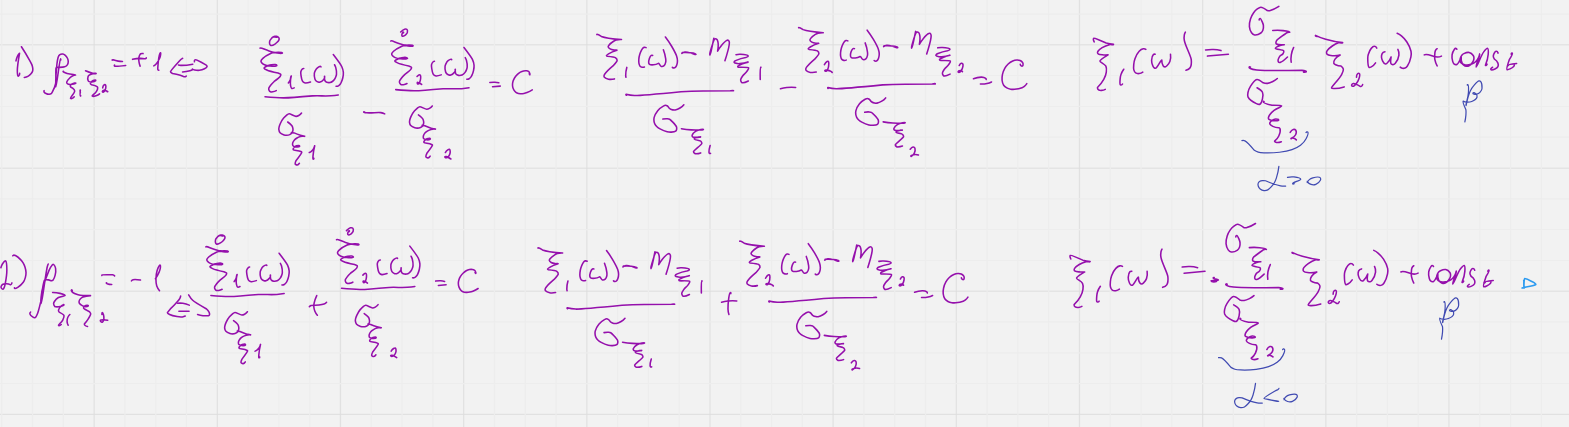 1) ρ_{ξ₁ξ₂} = +1 ⇔ ξ̊₁(ω)/σ_{ξ₁} − ξ̊₂(ω)/σ_{ξ₂} = C (ξ₁(ω) − m_{ξ₁})/σ_{ξ₁} − (ξ₂(ω) − m_{ξ₂})/σ_{ξ₂} = C ξ₁(ω) = σ_{ξ₁}/σ_{ξ₂} ξ₂(ω) + const
β
α>0
2) ρ_{ξ₁ξ₂} = −1 ⇔ ξ̊₁(ω)/σ_{ξ₁} + ξ̊₂(ω)/σ_{ξ₂} = C (ξ₁(ω) − m_{ξ₁})/σ_{ξ₁} + (ξ₂(ω) − m_{ξ₂})/σ_{ξ₂} = C ξ₁(ω) = - σ_{ξ₁}/σ_{ξ₂} ξ₂(ω) + const ▷
β
α<0